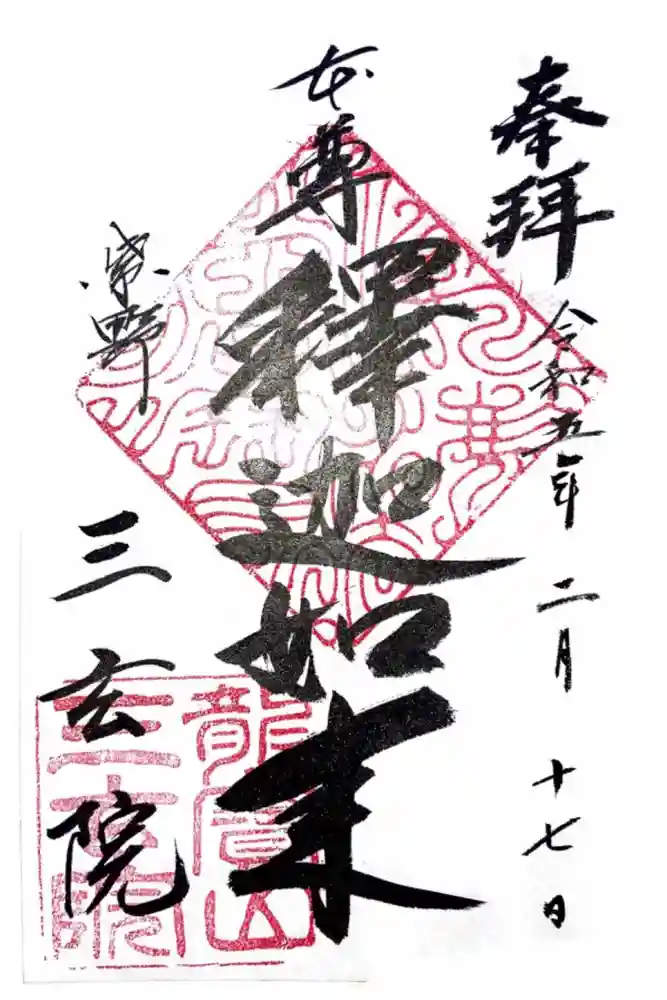 奉拝
令和五年二月十七日
本尊
釋迦如来
紫野
三玄院
龍宝山
三玄院